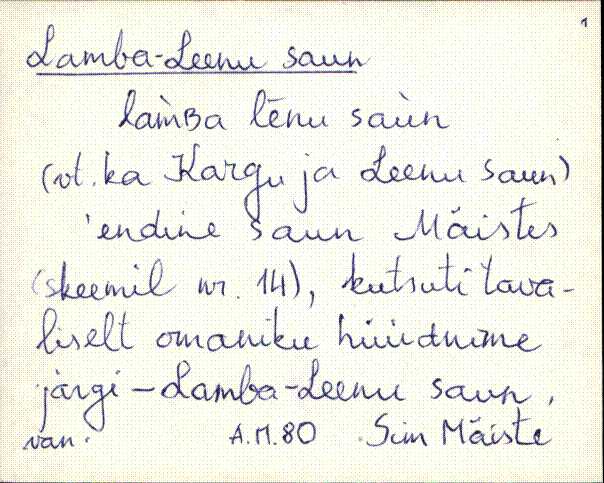 1
Lamba-Leenu saun
lam̀ʙa lēnu saùn
(vt. ka Kargu ja Leenu saun)
'endine saun Mäistes
(skeemil nr. 14), kutsuti tava-
liselt omaniku hüüdnime
järgi – Lamba-Leenu saun.
van. A.M. 80 Siim Mäiste